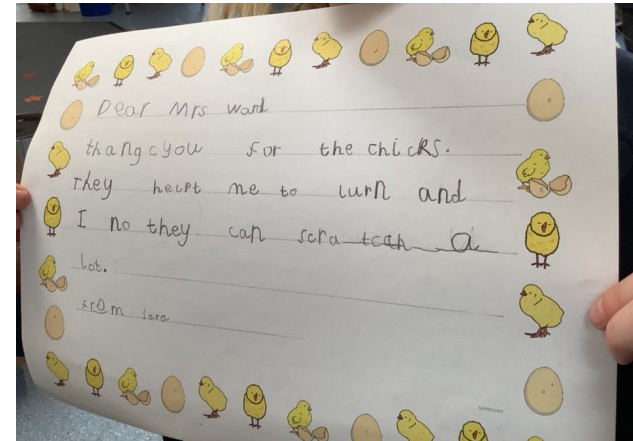 Dear Mrs Ward
thangcyou for the chicks.
They helpt me to lurn and
I no they can scratcah a
lot.
from sara